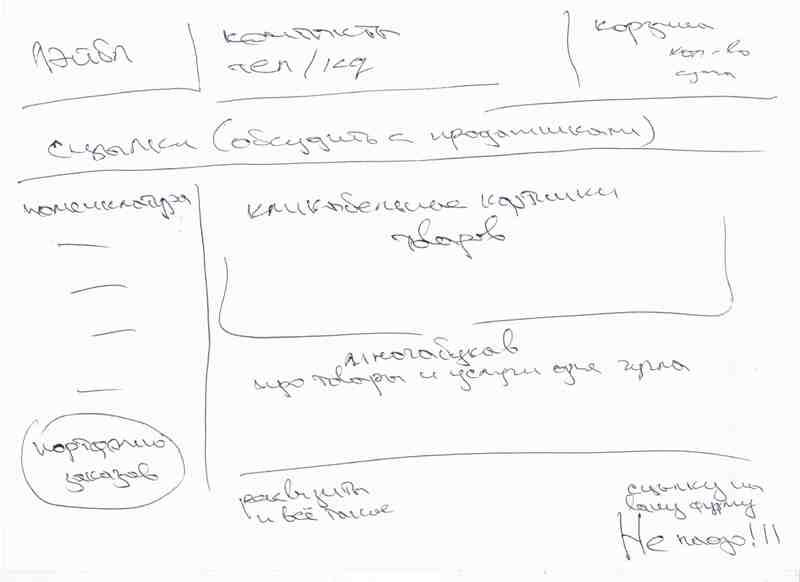 Лэйбл
контакты
тел/icq
корзина
кол-во
сумма
сцылки (обсудить с продажниками)
номенклатура
кликабельные картинки
товаров
многабукав
про товары и услуги для гугла
портфолио
заказов
реквизиты
и всё такое
сцылку на
вашу фирму
Не надо!!!